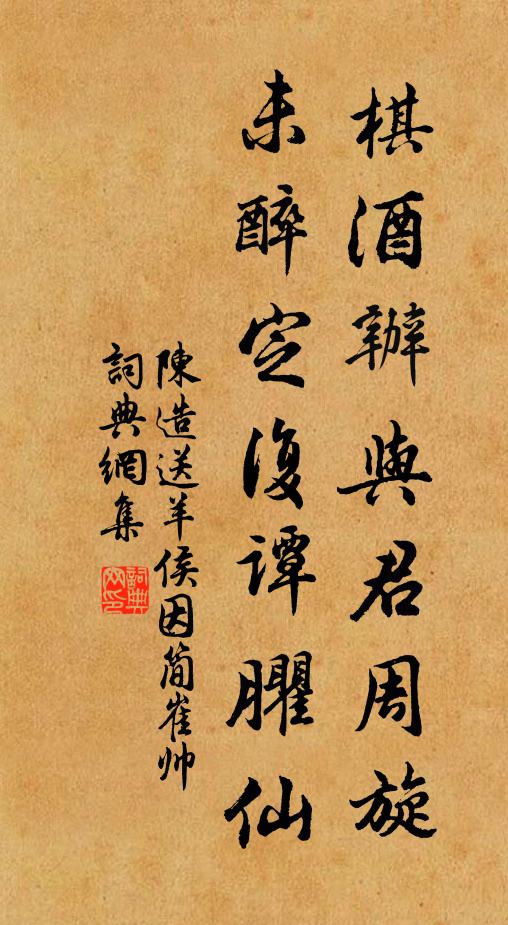 棋酒辦與君周旋
未醉定復譚臞仙
陳造送羊侯因簡崔帅
詞典網集
詞典网印